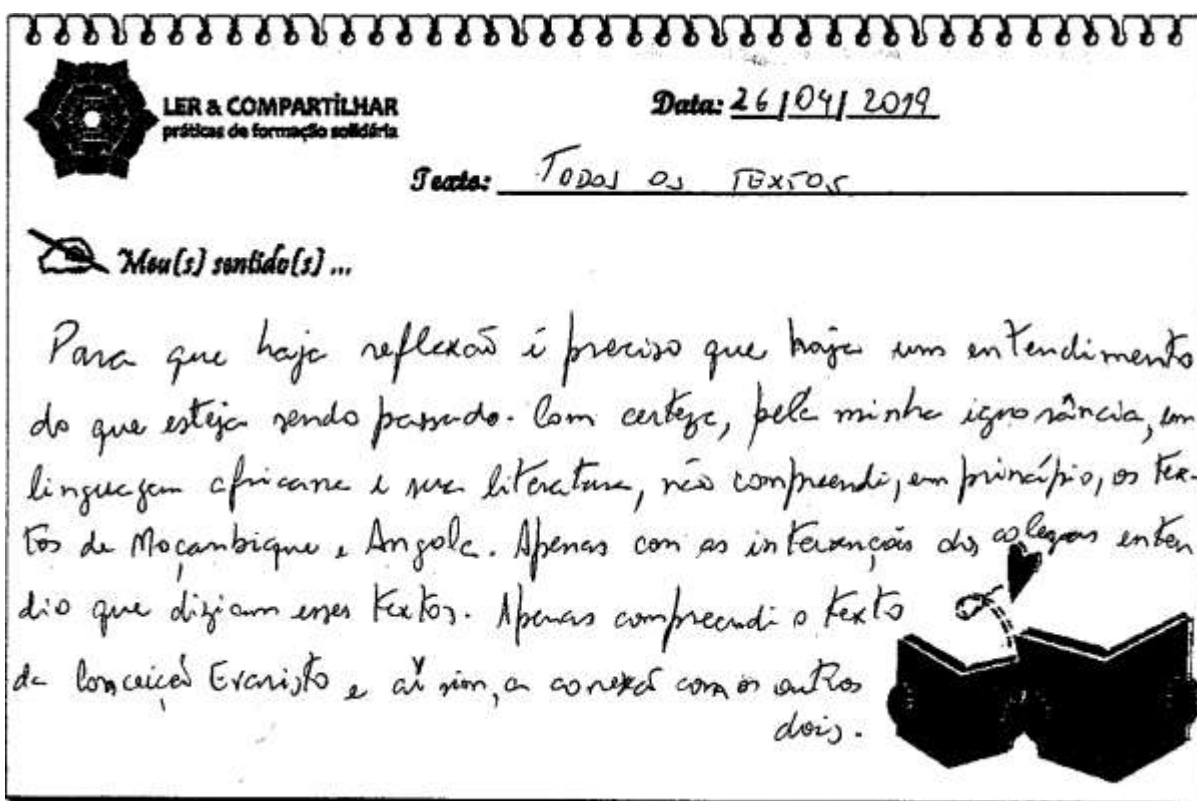 LER & COMPARTILHAR
práticas de formação solidária
Data: 26/04/2019
Texto: TODOS OS TEXTOS
Meu(s) sentido(s)...
Para que haja reflexão é preciso que haja um entendimento
do que esteja sendo passado. Com certeza, pela minha ignorância, em
linguagem africana e sua literatura, não compreendi, em princípio, os tex-
tos de Moçambique e Angola. Apenas com as intervenções dos colegas enten
di o que diziam esses textos. Apenas compreendi o texto
da Conceição Evaristo e aí sim, a conexão com os outros
dois.